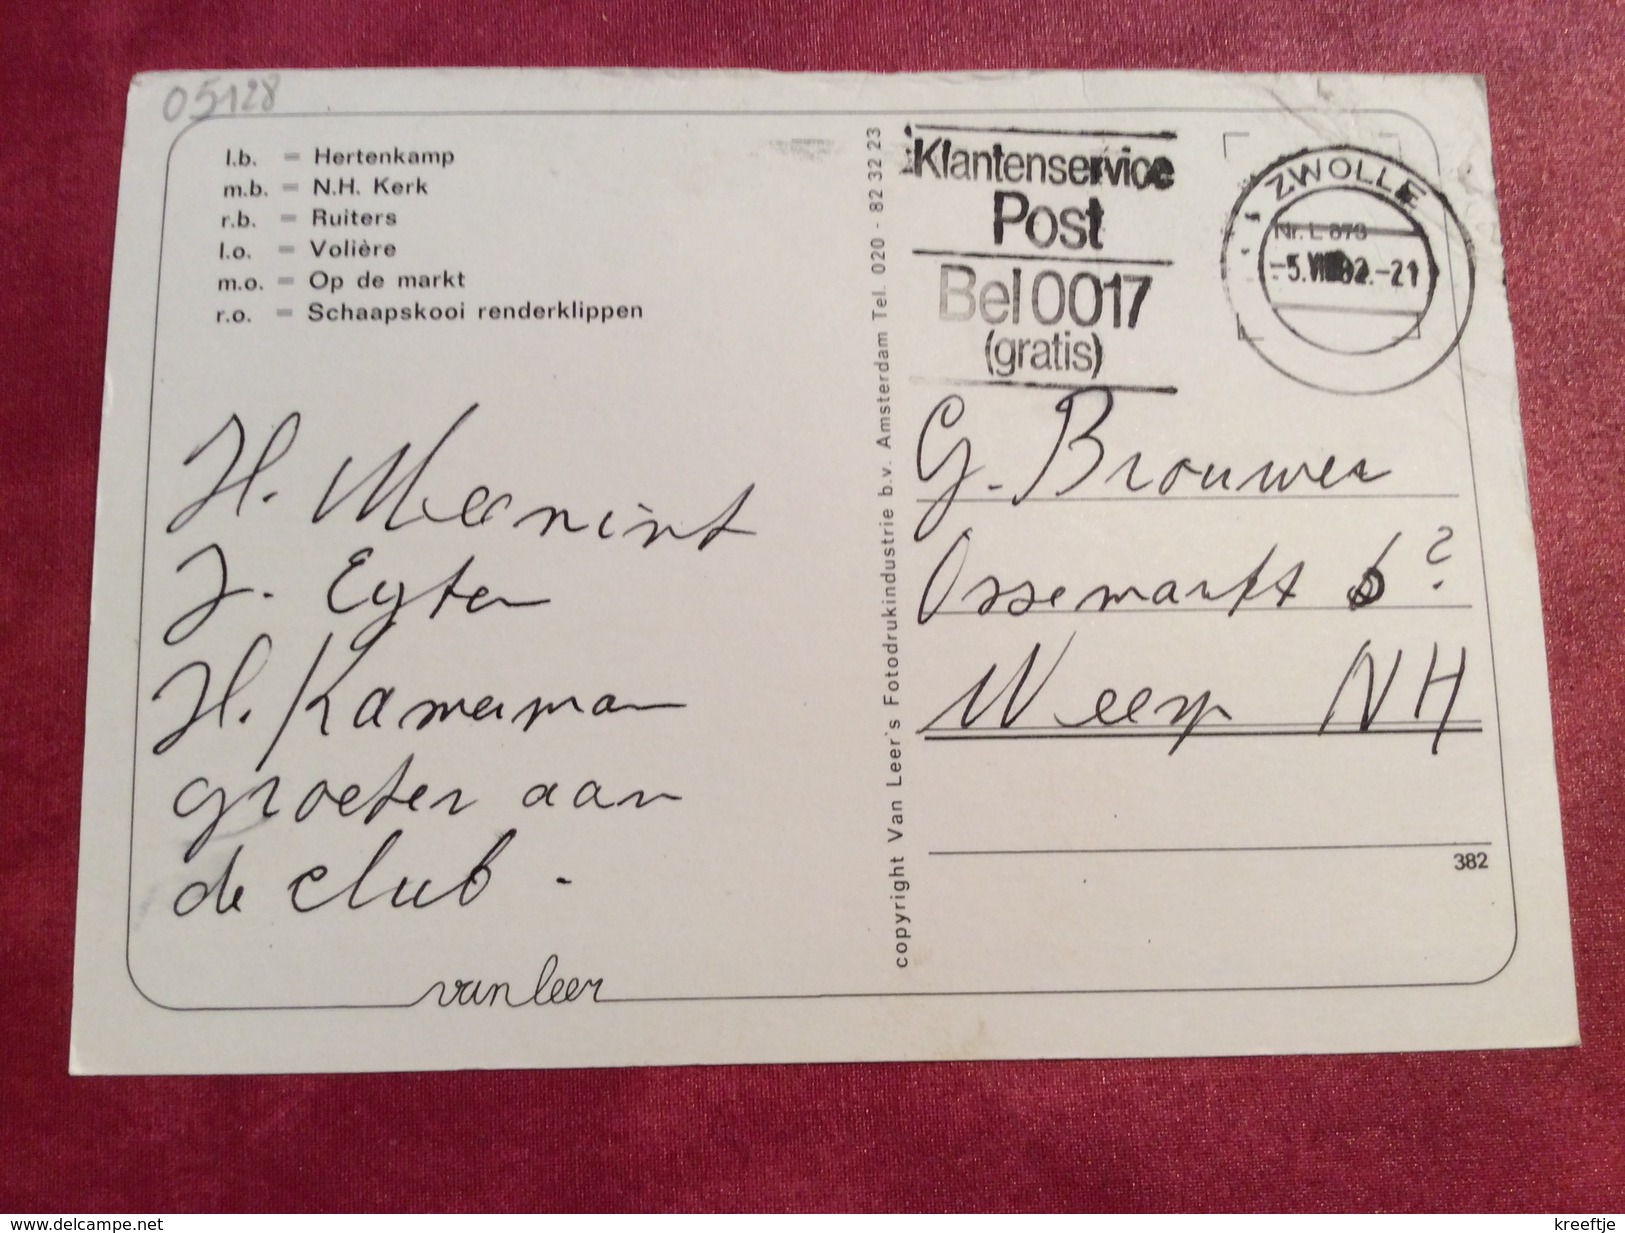 05128
l.b. = Hertenkamp
m.b. = N.H. Kerk
r.b. = Ruiters
l.o. = Volière
m.o. = Op de markt
r.o. = Schaapskooi renderklippen
H. Meenint
J. Eyten
H. Kamerman
groeten aan
de club.
van leer
copyright Van Leer's Fotodrukindustrie b.v. Amsterdam Tel. 020 - 82 32 23
Klantenservice
Post
Bel 0017
(gratis)
ZWOLLE
Nr. L 873
-5. 82.-21
G. Brouwer
Ossemarkt 6?
Weesp NH
382
www.delcampe.net
kreeftje